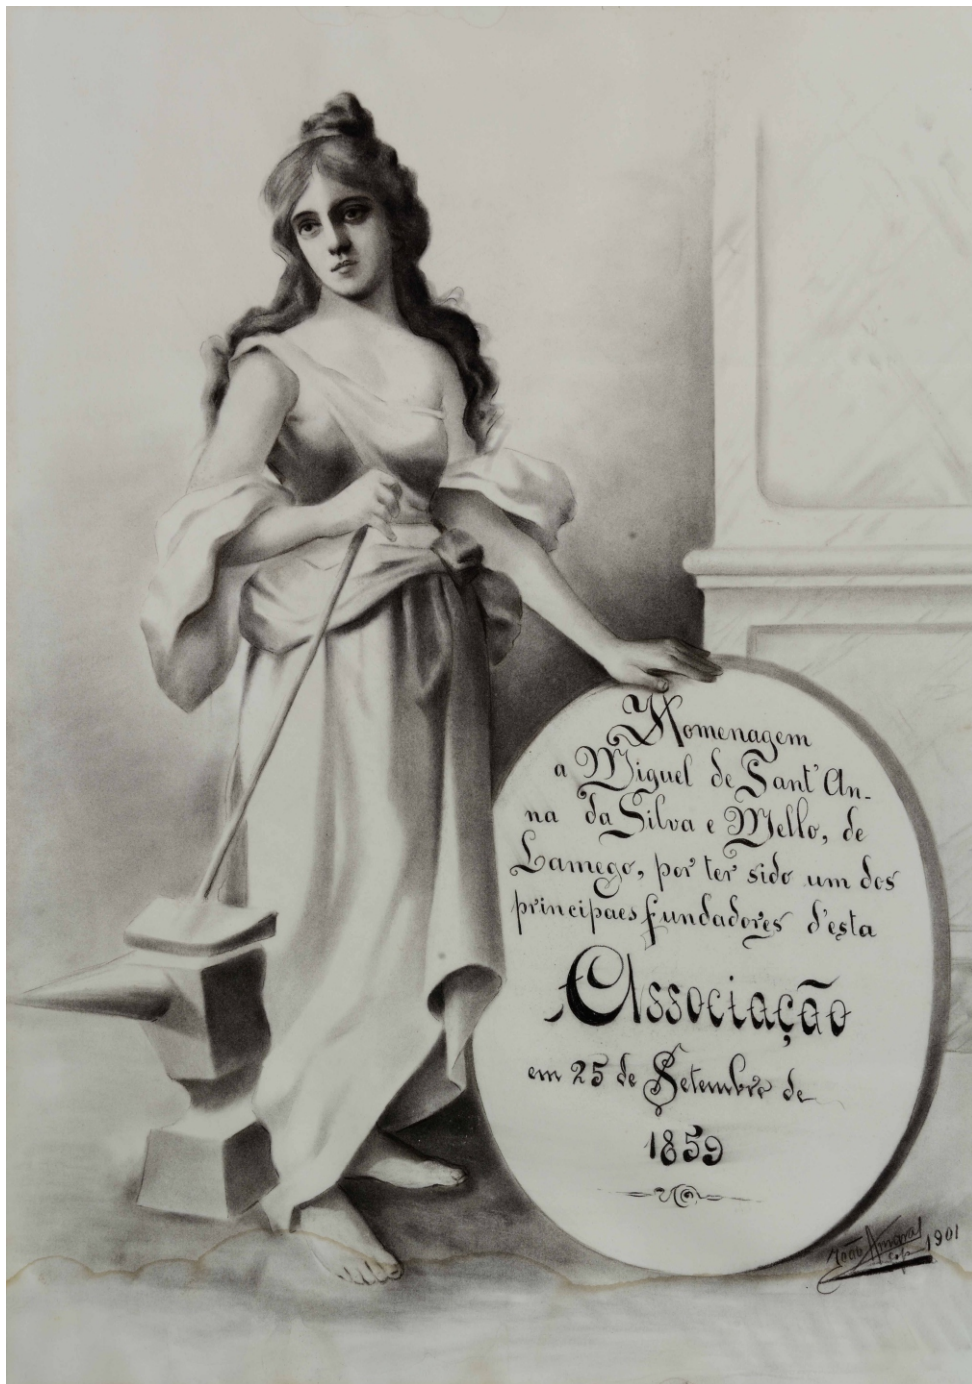 Homenagem
a Miguel de Sant' An-
na da Silva e Mello, de
Lamego, por ter sido um dos
principaes fundadores d'esta
Associação
em 25 de Setembro de
1859
João Amaral
cop. 1901